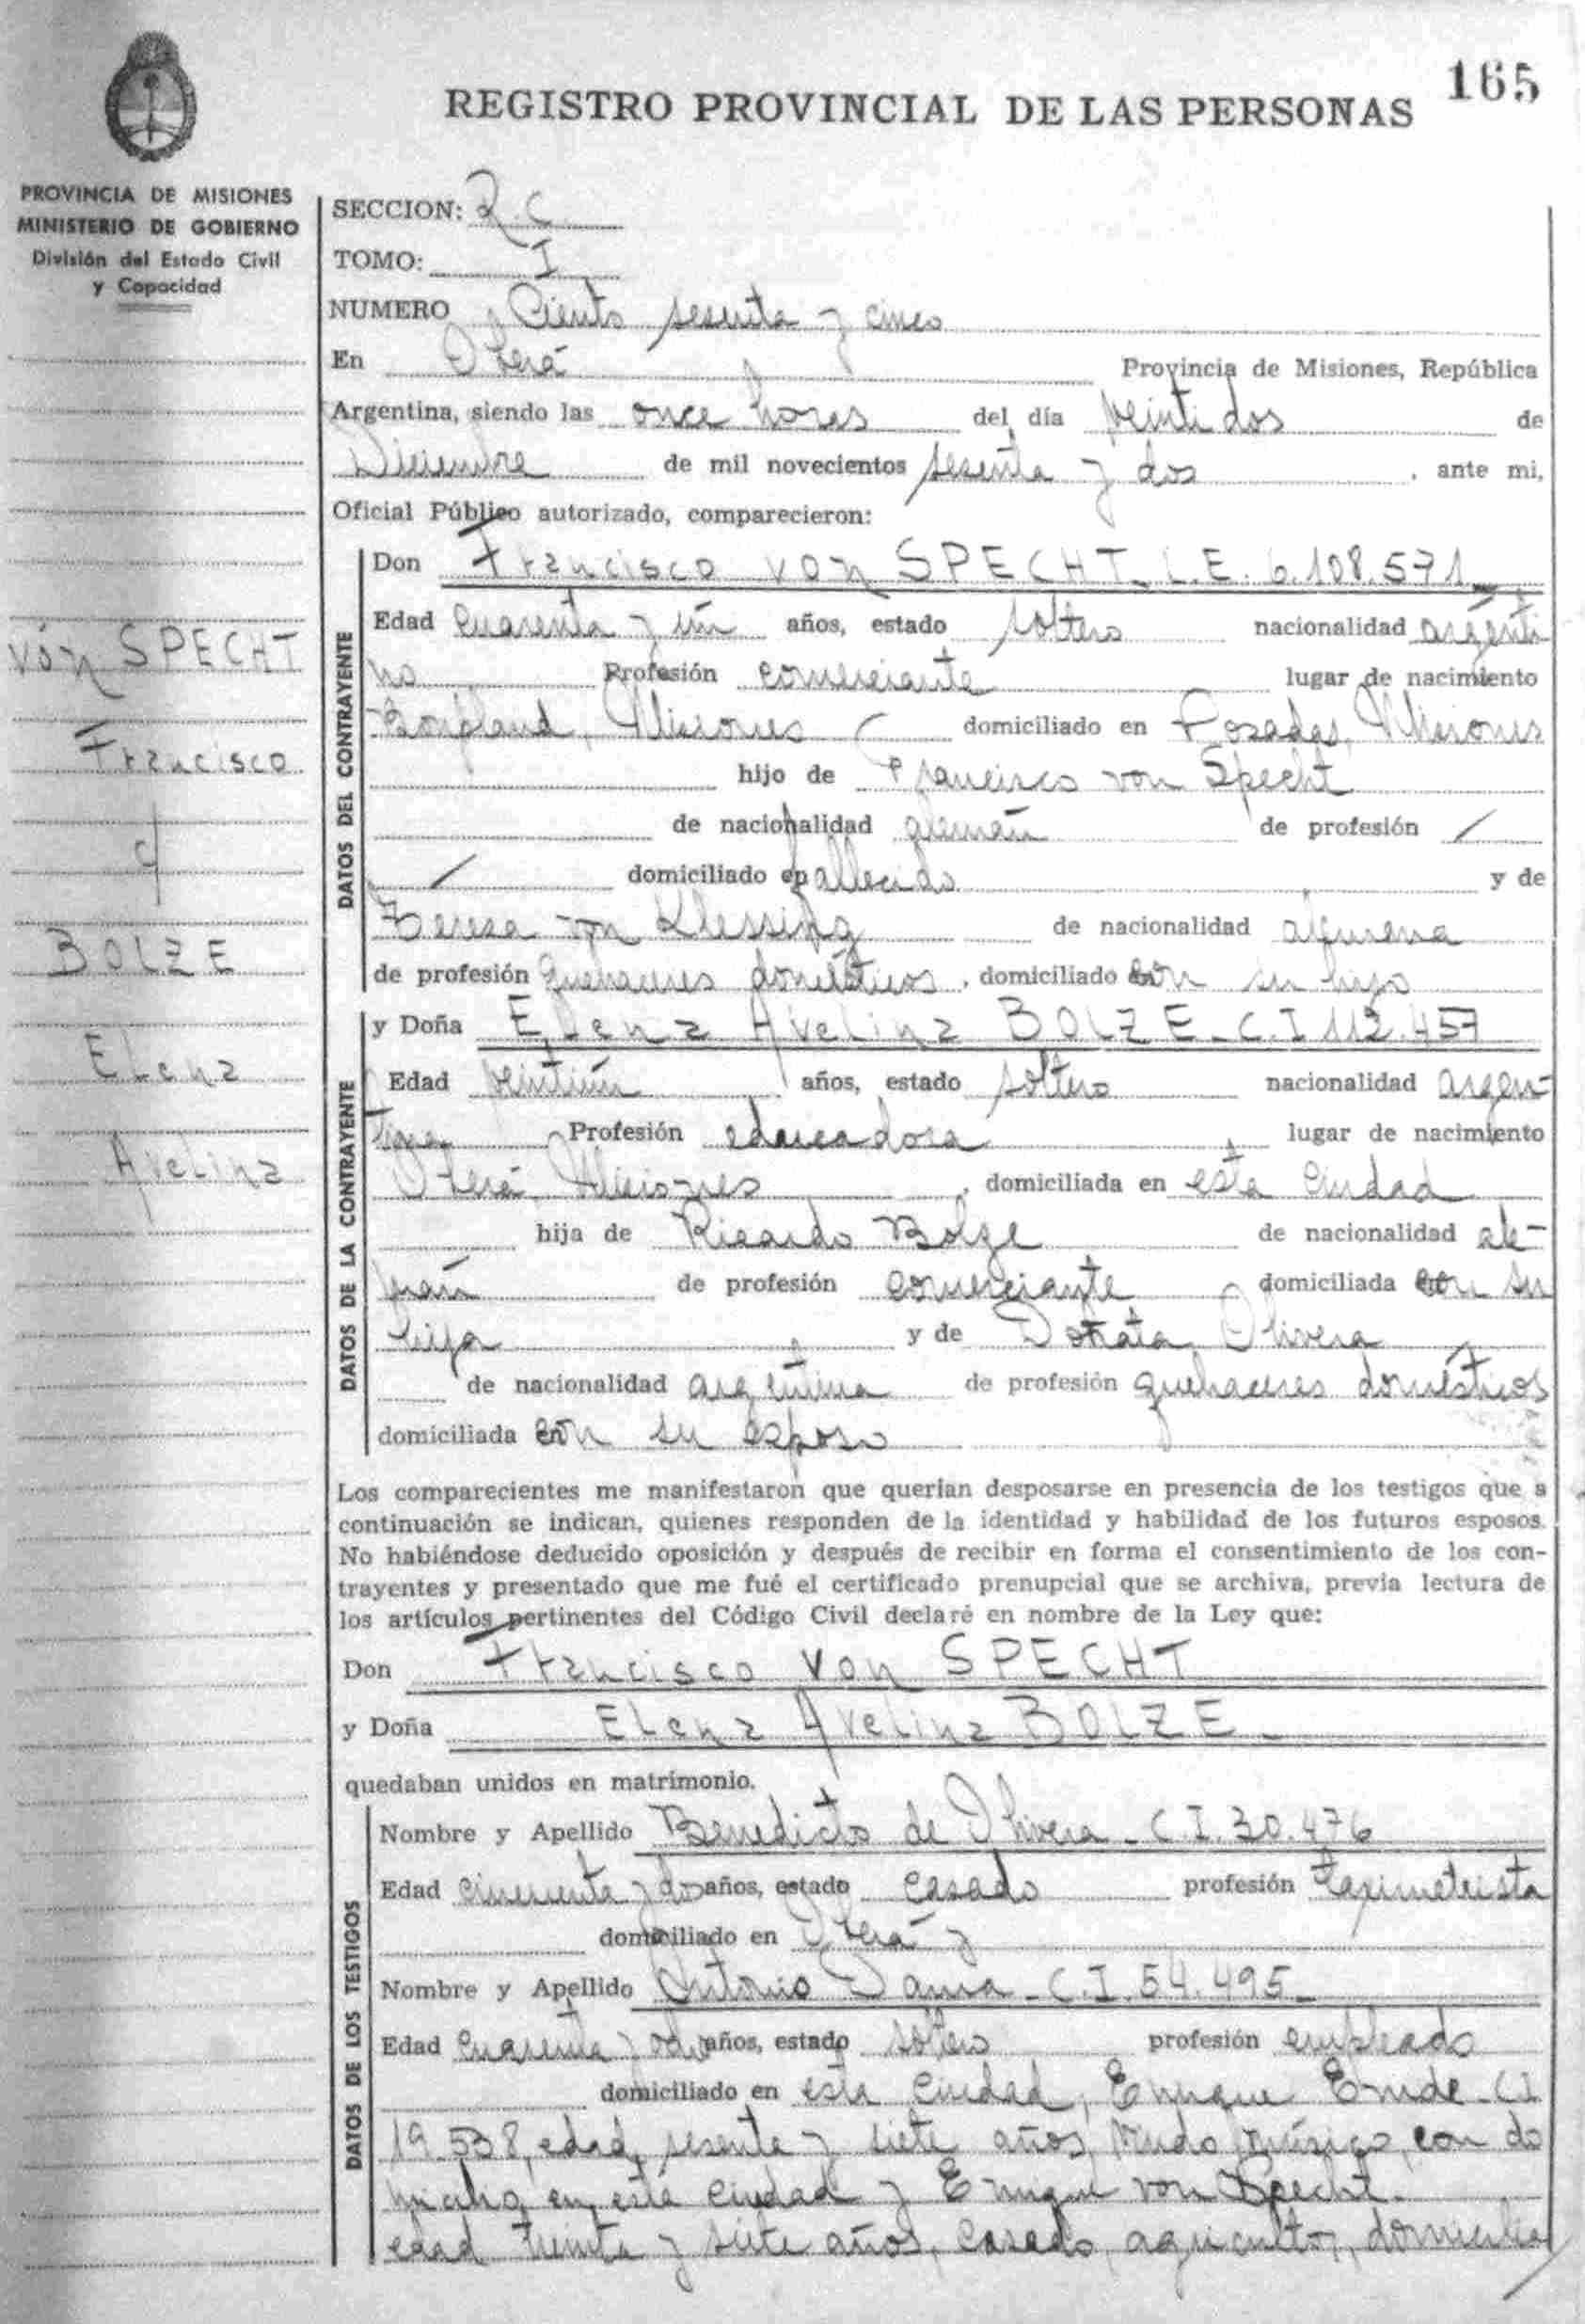 165
REGISTRO PROVINCIAL DE LAS PERSONAS
PROVINCIA DE MISIONES
MINISTERIO DE GOBIERNO
División del Estado Civil
y Capacidad
von SPECHT
Francisco
c/
BOLZE
Elena
Avelina
SECCION: R.C.
TOMO: I
NUMERO Ciento sesenta y cinco
En Oberá Provincia de Misiones, República
Argentina, siendo las once horas del día veintidos de
Diciembre de mil novecientos sesenta y dos, ante mi,
Oficial Público autorizado, comparecieron:
DATOS DEL CONTRAYENTE
Don Francisco von SPECHT L.E. 6.108.571
Edad cuarenta y un años, estado soltero nacionalidad argenti
no Profesión comerciante lugar de nacimiento
Bonpland, Misiones domiciliado en Posadas, Misiones
hijo de Francisco von Specht
de nacionalidad alemán de profesión /
/ domiciliado en fallecido y de
Teresa von Klessing de nacionalidad alemana
de profesión quehaceres domésticos, domiciliado con su hijo
DATOS DE LA CONTRAYENTE
y Doña Elena Avelina BOLZE - C.I 112.457
Edad veintiún años, estado soltero nacionalidad argen-
tina Profesión educadora lugar de nacimiento
Oberá, Misiones, domiciliada en esta ciudad
hija de Ricardo Bolze de nacionalidad ale-
mán de profesión comerciante domiciliada con su
hija y de Donata Olivera
de nacionalidad argentina de profesión quehaceres domésticos
domiciliada con su esposo
Los comparecientes me manifestaron que querían desposarse en presencia de los testigos que a
continuación se indican, quienes responden de la identidad y habilidad de los futuros esposos.
No habiéndose deducido oposición y después de recibir en forma el consentimiento de los con-
trayentes y presentado que me fué el certificado prenupcial que se archiva, previa lectura de
los artículos pertinentes del Código Civil declaré en nombre de la Ley que:
Don Francisco von SPECHT
y Doña Elena Avelina BOLZE
quedaban unidos en matrimonio.
DATOS DE LOS TESTIGOS
Nombre y Apellido Benedicto de Olivera - C.I. 30.476
Edad cincuenta y dos años, estado casado profesión taximetrista
domiciliado en Oberá y
Nombre y Apellido Antonio Dama - C.I. 54.495
Edad cuarenta y ocho años, estado soltero profesión empleado
domiciliado en esta ciudad, Enrique - CI
19.538, edad, sesenta y siete años, viudo, músico, con do
micilio en esta ciudad y Enrique von Specht.
edad treinta y siete años, casado, agricultor, domicilia